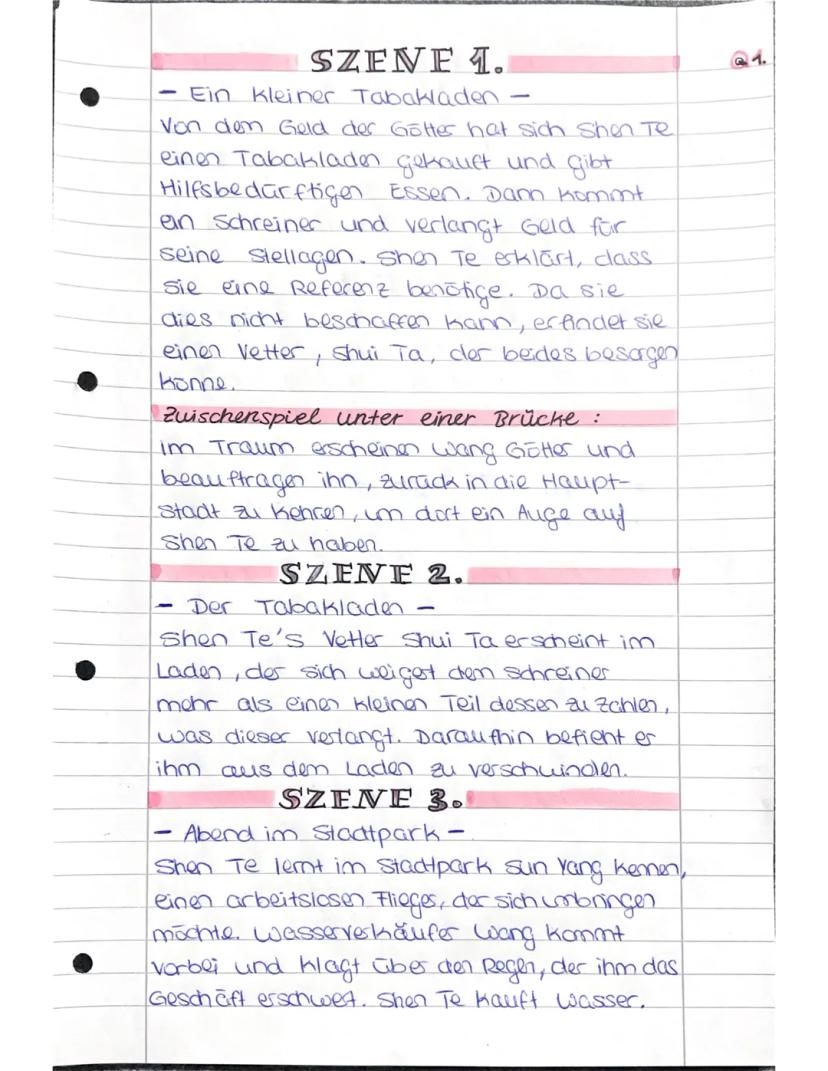 SZENE 1.
Q1.
– Ein kleiner Tabakladen –
Von dem Geld der Götter hat sich Shen Te
einen Tabakladen gekauft und gibt
Hilfsbedürftigen Essen. Dann kommt
ein Schreiner und verlangt Geld für
seine Stellagen. Shen Te erklärt, dass
sie eine Referenz benötige. Da sie
dies nicht beschaffen kann, erfindet sie
einen Vetter, Shui Ta, der beides besorgen
könne.
Zwischenspiel unter einer Brücke:
Im Traum erscheinen Wang Götter und
beauftragen ihn, zurück in die Haupt-
stadt zu kehren, um dort ein Auge auf
Shen Te zu haben.
SZENE 2.
– Der Tabakladen –
Shen Te's Vetter Shui Ta erscheint im
Laden, der sich weigert dem Schreiner
mehr als einen kleinen Teil dessen zu zahlen,
was dieser verlangt. Daraufhin befieht er
ihm aus dem Laden zu verschwinden.
SZENE 3.
– Abend im Stadtpark –
Shen Te lernt im Stadtpark Sun Yang kennen,
einen arbeitslosen Flieger, der sich umbringen
möchte. Wasserverkäufer Wang kommt
vorbei und klagt über den Regen, der ihm das
Geschäft erschwert. Shen Te kauft Wasser.